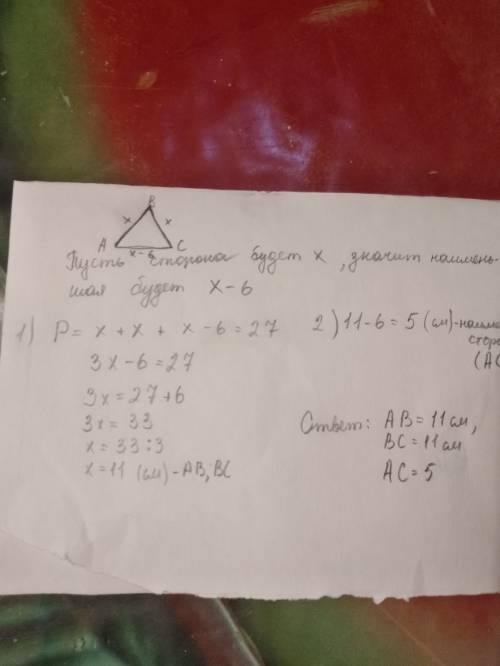 B
x x
A x-6 C
Пусть сторона будет x, значит наимень-
шая будет x-6
1) P= x + x + x - 6 = 27
3x - 6 = 27
3x = 27+6
3x = 33
x = 33:3
x = 11 (см) - AB, BC
2) 11-6 = 5 (см) - наим
сторо
(AC
Ответ: AB = 11 см,
BC = 11 см
AC = 5